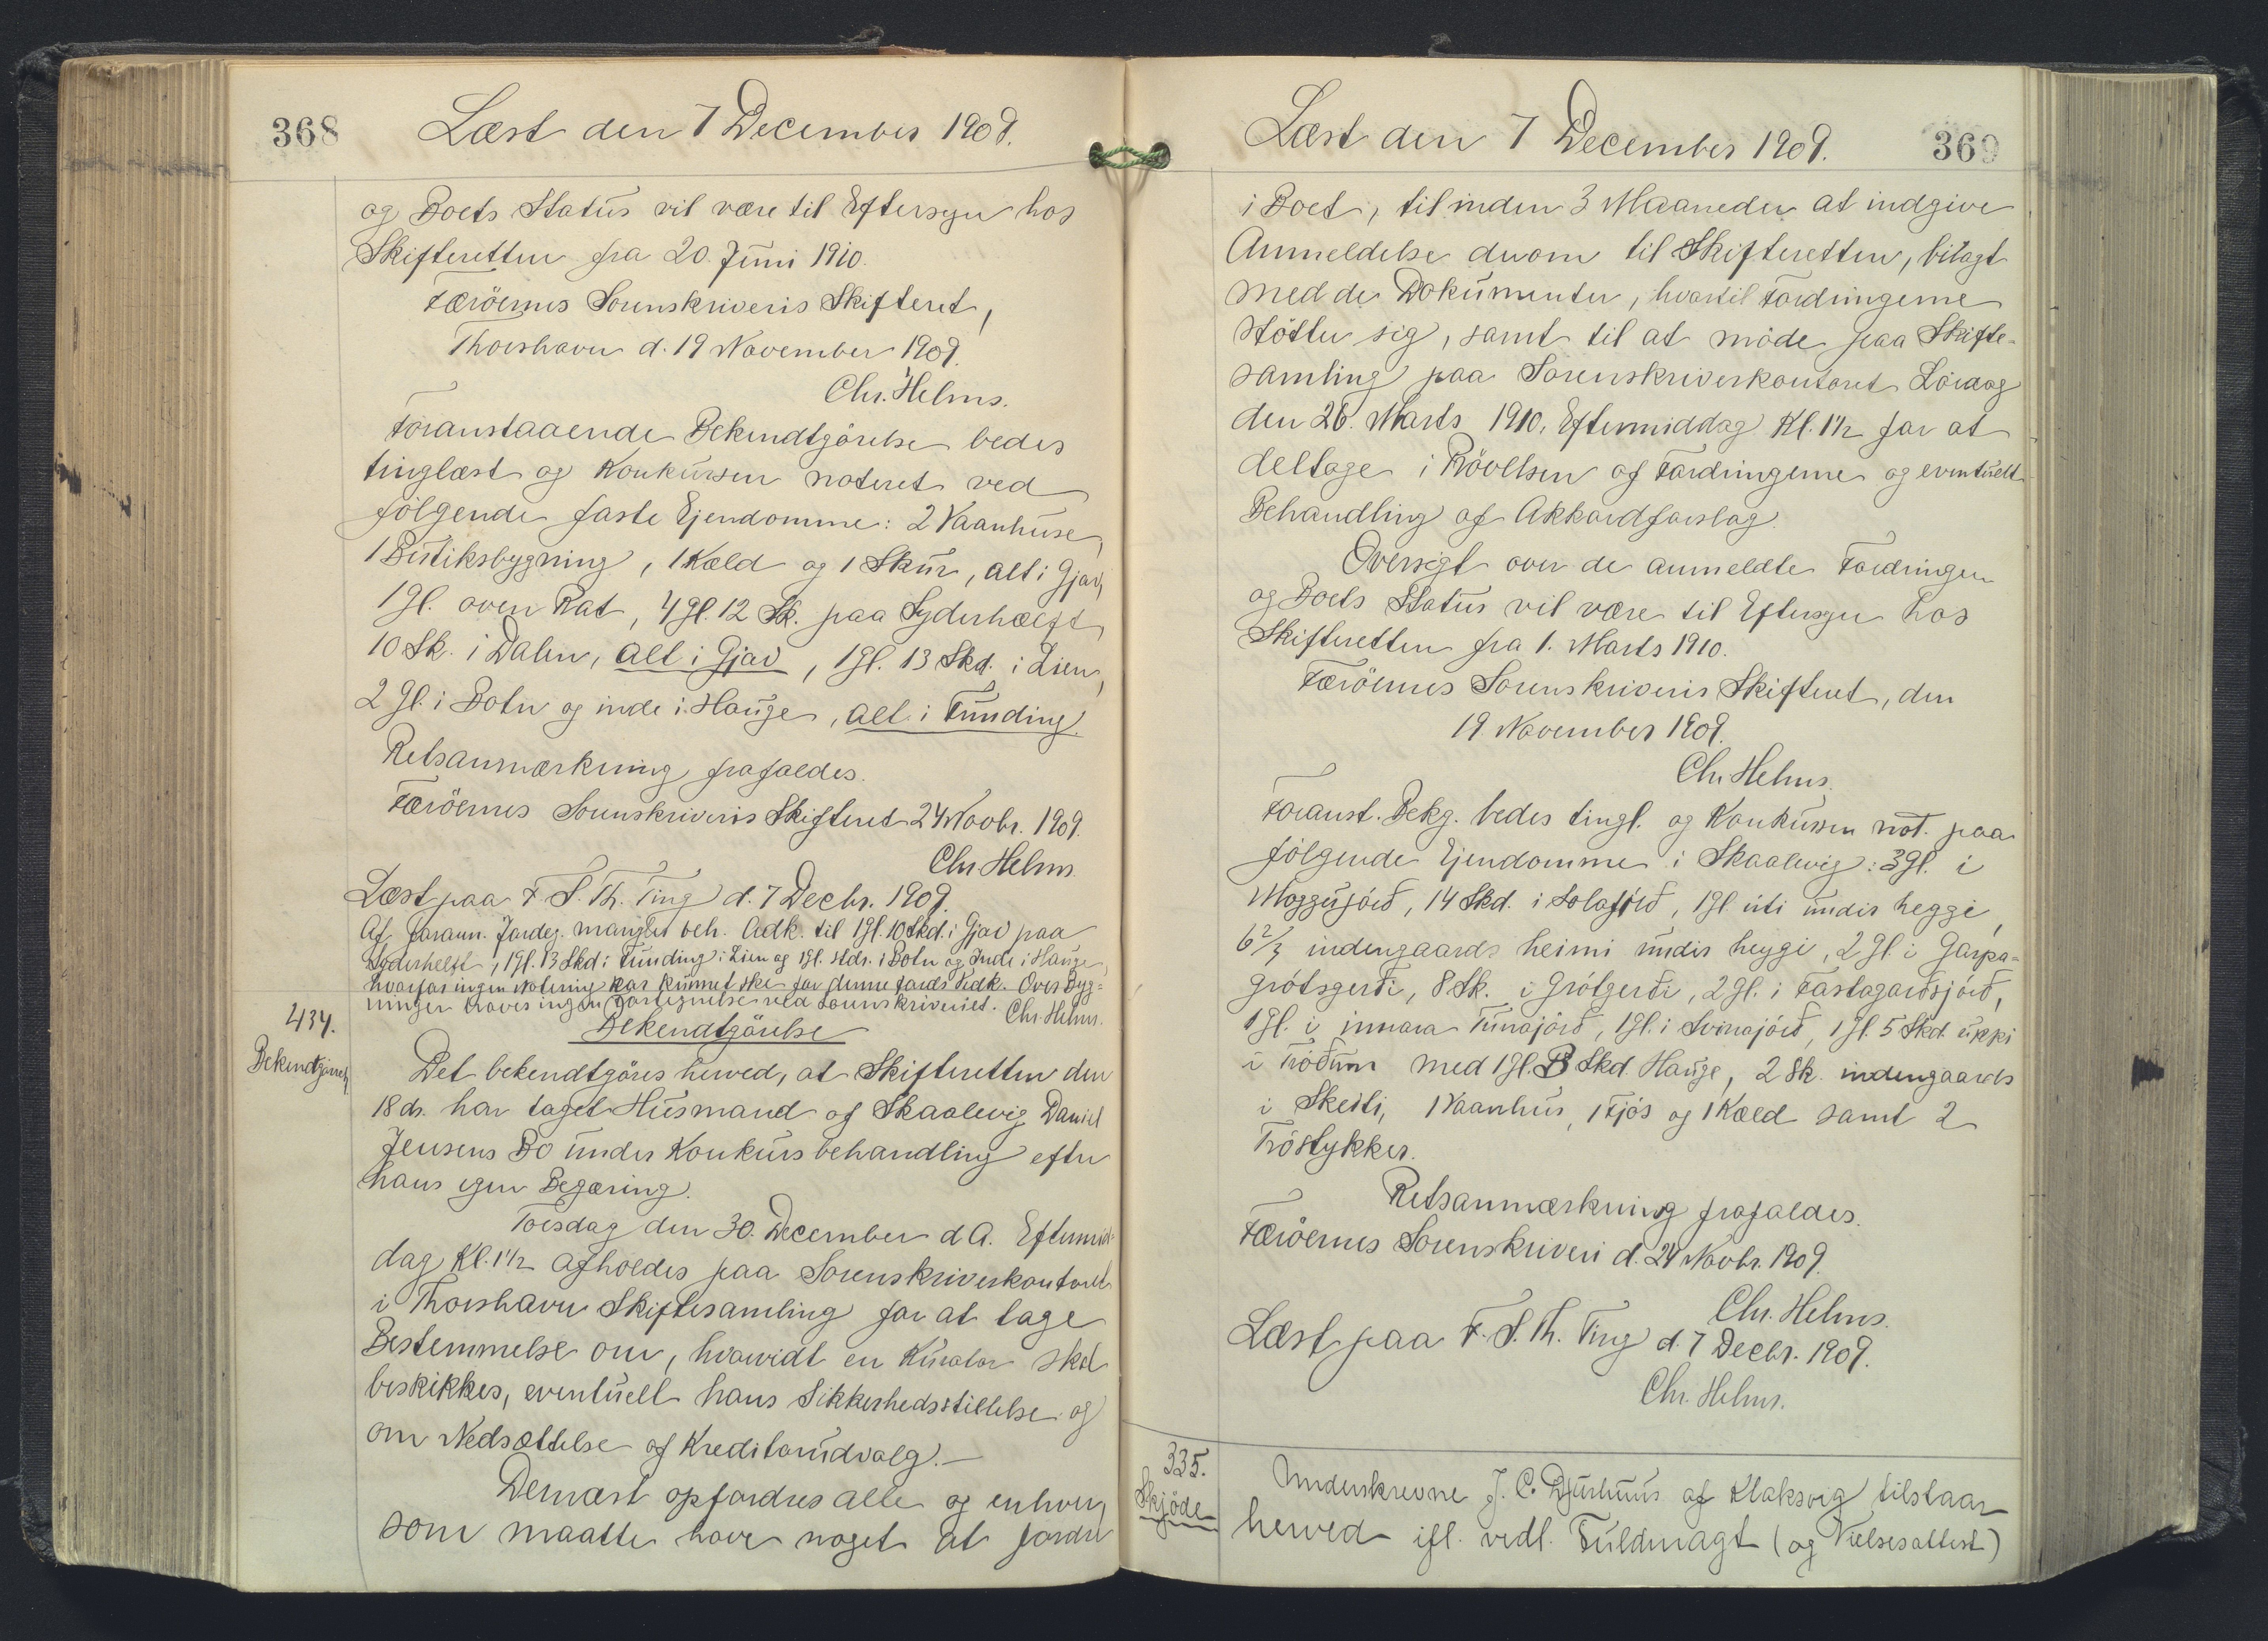 368
Læst den 7 December 1909.
og Boets Status vil være til Eftersyn hos
Skifteretten fra 20. Juni 1910.
Færöernes Sorenskriveris Skifteret,
Thorshavn d. 19 November 1909.
Chr. Helms.
Foranstaaende Bekendtgörelse bedes
tinglæst og Konkursen noteret ved
fölgende faste Ejendomme: 2 Vaanhuse,
1 Butiksbygning, 1 Kæld og 1 Skur, alt i Gjov,
1 Gl. oven Rat, 4 Gl. 12 Sk. paa Syderhælft
10 Sk. i Dalen, alt i Gjov, 1 Gl. 13 Skd. i Lien,
2 Gl. i Botn og inde i Hauge, alt i Funding.
Retsanmærkning frafaldes.
Færöernes Sorenskriveris Skifteret 24 Novbr. 1909.
Chr. Helms.
Læst paa F. S. Th. Ting d. 7 Decbr. 1909.
Af foran. Jordeg. mangler beh. Adk. til 1 Gl. 10 Skd. i Gjov paa
Syderhelft, 1 Gl. 13 Skd. i Funding i Lien og 1 Gl. stdr. i Botn og Inde i Hauge,
hvorfor ingen Notering har kunnet ske for denne Jords Vedk. Over Byg-
ninger haves ingen Fortegnelse ved Sorenskriveriet. Chr. Helms.
434.
Bekendtgörelse
Bekendtgörelse
Det bekendtgöres herved, at Skifteretten den
18 ds. har taget Husmand af Skaalevig Daniel
Jensens Bo under Konkursbehandling efter
hans egen Begæring.
Torsdag den 30. December d A. Eftermid-
dag Kl. 1½ afholdes paa Sorenskriverkontoret
i Thorshavn Skiftesamling for at tage
Bestemmelse om, hvorvidt en Kurator skal
beskikkes, eventuelt hans Sikkerhedsstillelse og
om Nedsættelse af Kreditorudvalg.-
Dernæst opfordres alle og enhver,
som maatte have noget at fordre
369
Læst den 7 December 1909.
i Boet, til inden 3 Maaneder at indgive
Anmeldelse derom til Skifteretten, bilagt
med de Dokumenter, hvortil Fordringerne
stötter sig, samt til at möde paa Skifte-
samling paa Sorenskriverkontoret Lördag
den 26. Marts 1910, Eftermiddag Kl. 1½ for at
deltage i Prövelsen af Fordringerne og eventuelt
Behandling af Akkordforslag.
Oversigt over de anmeldte Fordringer
og Boets Status vil være til Eftersyn hos
Skifteretten fra 1. Marts 1910.
Færöernes Sorenskriveris Skifteret, den
19 November 1909.
Chr. Helms.
Foranst. Bekg. bedes tingl. og Konkursen not. paa
fölgende Ejendomme i Skaalevig: 3 Gl. i
Moggujörð, 14 Skd. i Solajörð, 1 Gl. uti undir heggi,
6 2/3 indengaards heimi undir heyggi, 2 Gl. i Garpa-
grótsgerði, 8 Sk. i Grótgerði, 2 Gl. i Fastagarðsjörð,
1 Gl. i innara Tunajörð, 1 Gl. i Svinajörð, 1 Gl. 5 Skd. úkki
i Tröðum med 1 Gl. 13 Skd. Hauge, 2 Sk. indengaards
i Skeiti, 1 Vaanhus, 1 Fjós og 1 Kæld samt 2
Tröstykker.
Retsanmærkning frafaldes.
Færöernes Sorenskriveri d. 24 Novbr. 1909.
Chr. Helms.
Læst paa F. S. Th. Ting d. 7 Decbr. 1909.
Chr. Helms.
335.
Skjöde
Underskrevne J. C. Djurhuus af Klaksvig tilstaar
herved ifl. vedl. Fuldmagt (og Vielsesattest)